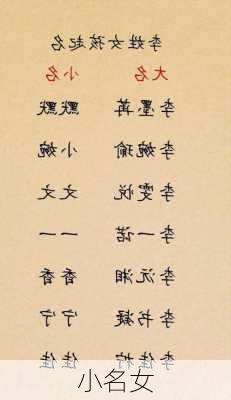 李姓女孩起名
大名 小名
李墨苒 默默
李婉瑜 小婉
李雯悦 文文
李一诺 一一
李沅湘 香香
李书凝 宁宁
李佳柠 佳佳
小名女